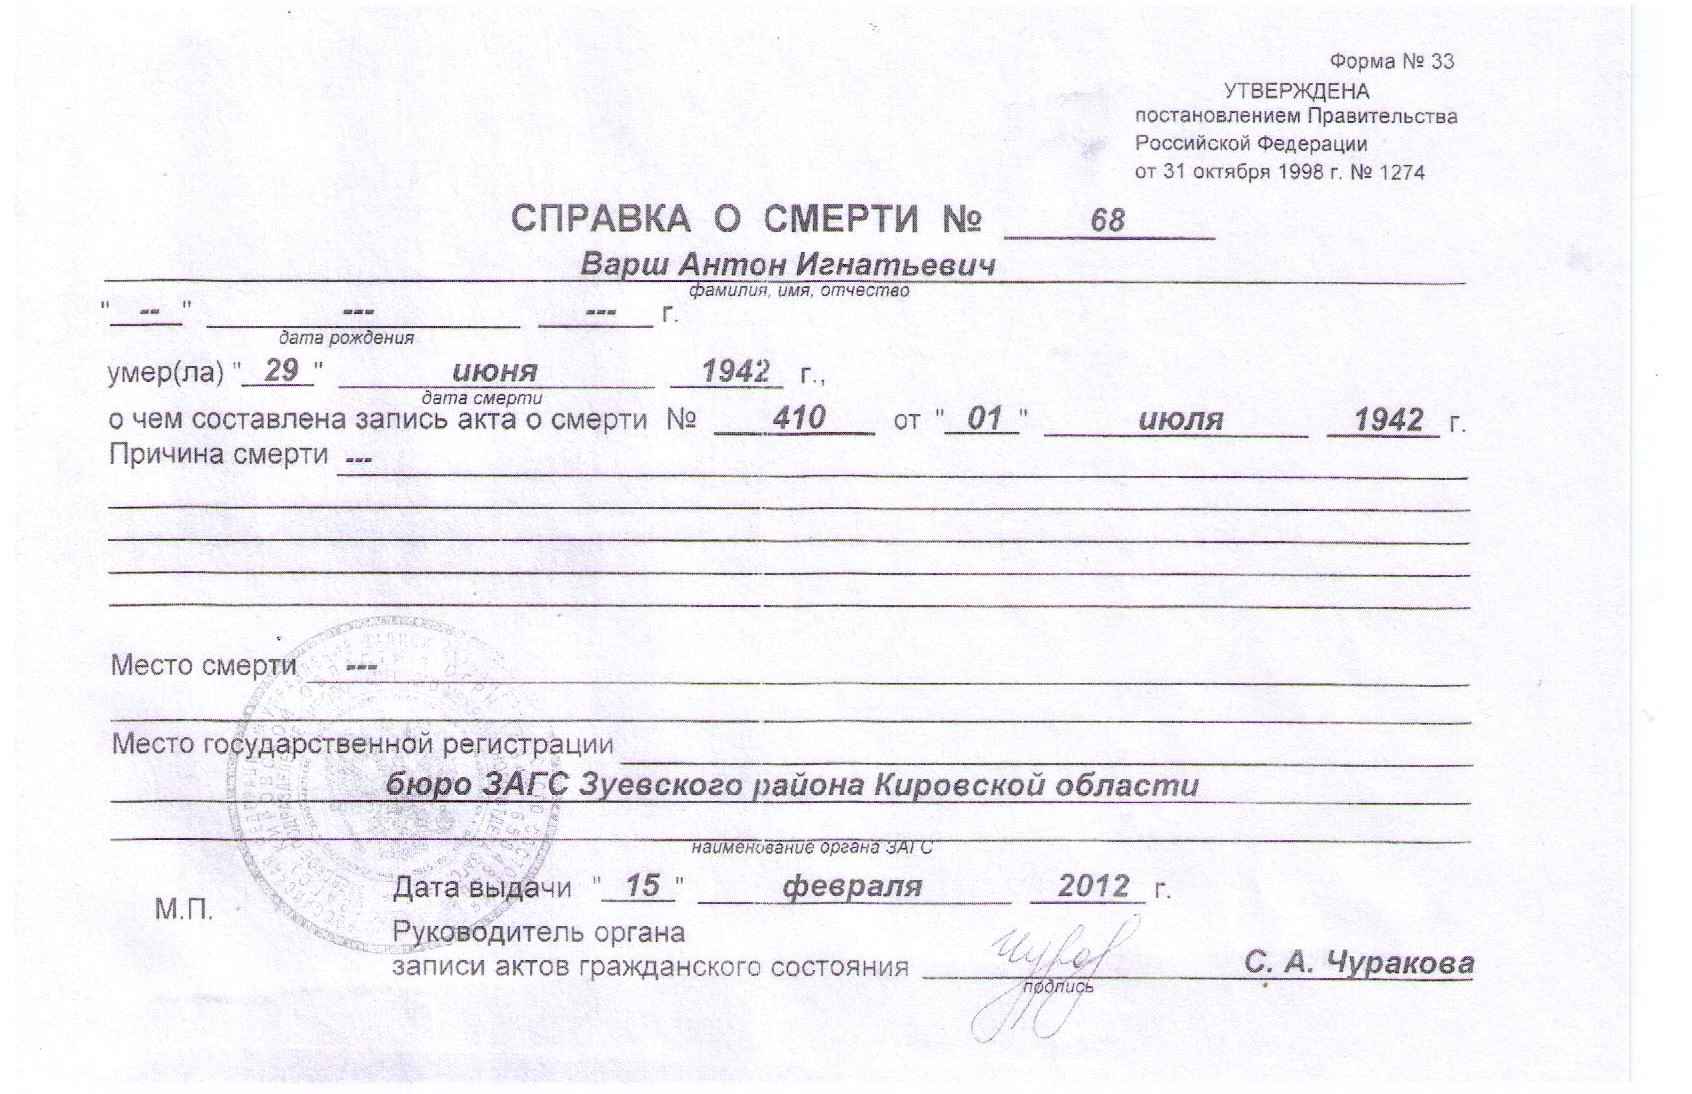 Форма № 33
УТВЕРЖДЕНА
постановлением Правительства
Российской Федерации
от 31 октября 1998 г. № 1274
СПРАВКА О СМЕРТИ № 68
Варш Антон Игнатьевич
фамилия, имя, отчество
" -- " --- --- г.
дата рождения
умер(ла) " 29 " июня 1942 г.,
дата смерти
о чем составлена запись акта о смерти № 410 от " 01 " июля 1942 г.
Причина смерти ---
Место смерти ---
Место государственной регистрации
бюро ЗАГС Зуевского района Кировской области
наименование органа ЗАГС
Дата выдачи " 15 " февраля 2012 г.
М.П.
Руководитель органа
записи актов гражданского состояния С. А. Чуракова
подпись